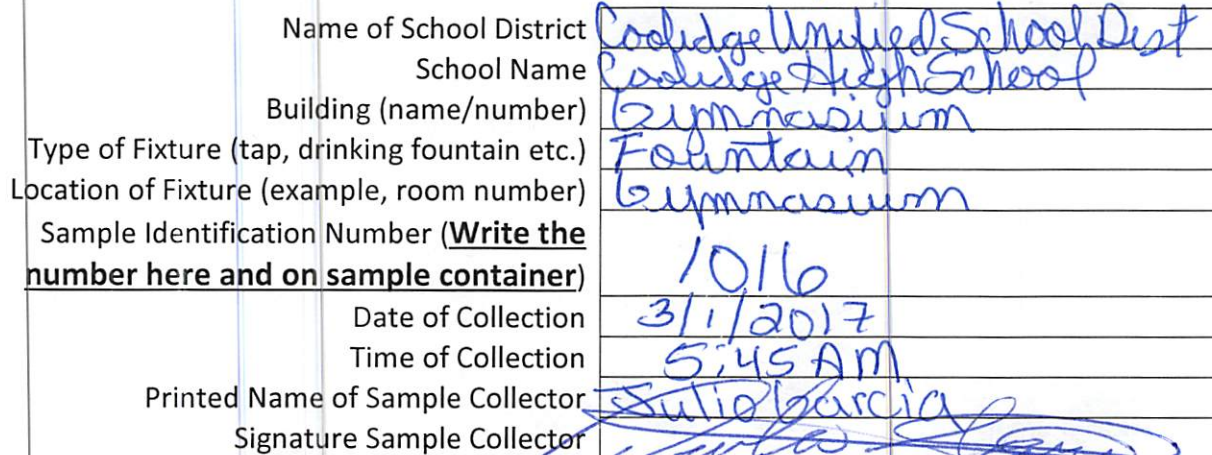 Name of School District Coolidge Unified School Dist
School Name Coolidge High School
Building (name/number) Gymnasium
Type of Fixture (tap, drinking fountain etc.) Fountain
Location of Fixture (example, room number) Gymnasium
Sample Identification Number (Write the
number here and on sample container) 1016
Date of Collection 3/1/2017
Time of Collection 5:45 AM
Printed Name of Sample Collector Julio Garcia
Signature Sample Collector